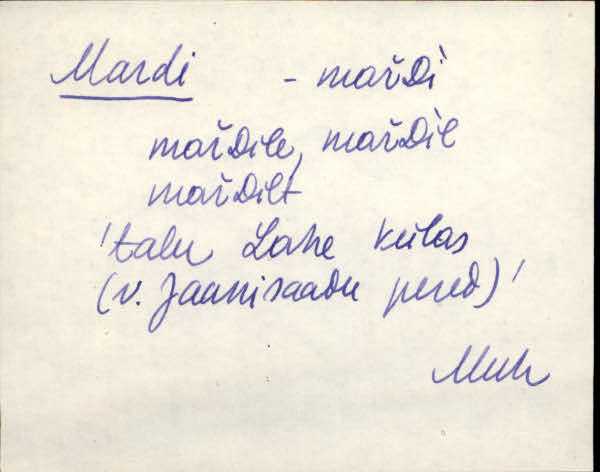 Mardi - mař​Di
mařDile, mařDil
mařDilt
'talu Lahe külas
(v. Jaanisaadu pered)'
Muh